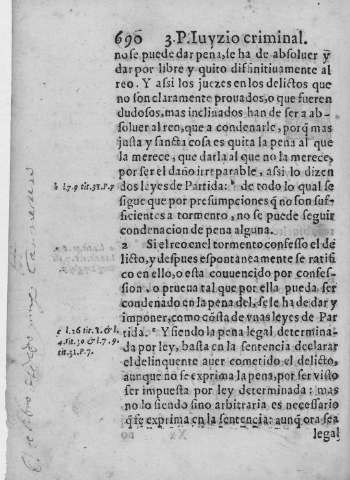 690 3.P.Iuyzio criminal.
no se puede dar pena, se ha de absoluer y
dar por libre y quito difinitiuamente al
reo. Y assi los juezes en los delictos que
no son claramente prouados, o que fueren
dudosos, mas inclinados han de ser a ab-
soluer al reo, que a condenarle, porq̃ mas
justa y sancta cosa es quita la pena al que
la merece, que darla al que no la merece,
por ser el daño irreparable, assi lo dizen
b l.7.9 tit.31.P.7
dos leyes de Partida: b de todo lo qual se
sigue que por presumpciones q̃ no son suf-
ficientes a tormento, no se puede seguir
condenacion de pena alguna.
2 Si el reo en el tormento confesso el de
licto, y despues espontaneamente se ratifi
co en ello, o esta couuencido por confes-
sion, o prueua tal que por ella pueda ser
condenado en la pena del, se le ha de dar y
imponer, como cõsta de vnas leyes de Par
c l.26 tit.1. & l.
4.tit.30 & l.7.9.
tit.31.P.7.
tida. c Y siendo la pena legal, determina-
da por ley, basta en la sentencia declarar
el delinquente auer cometido el delicto,
aunque no se exprima la pena, por ser visto
ser impuesta por ley determinada: mas
no lo siendo sino arbitraria es necessario
q̃ se exprima en la sentencia: aunq̃ ora sea
legal